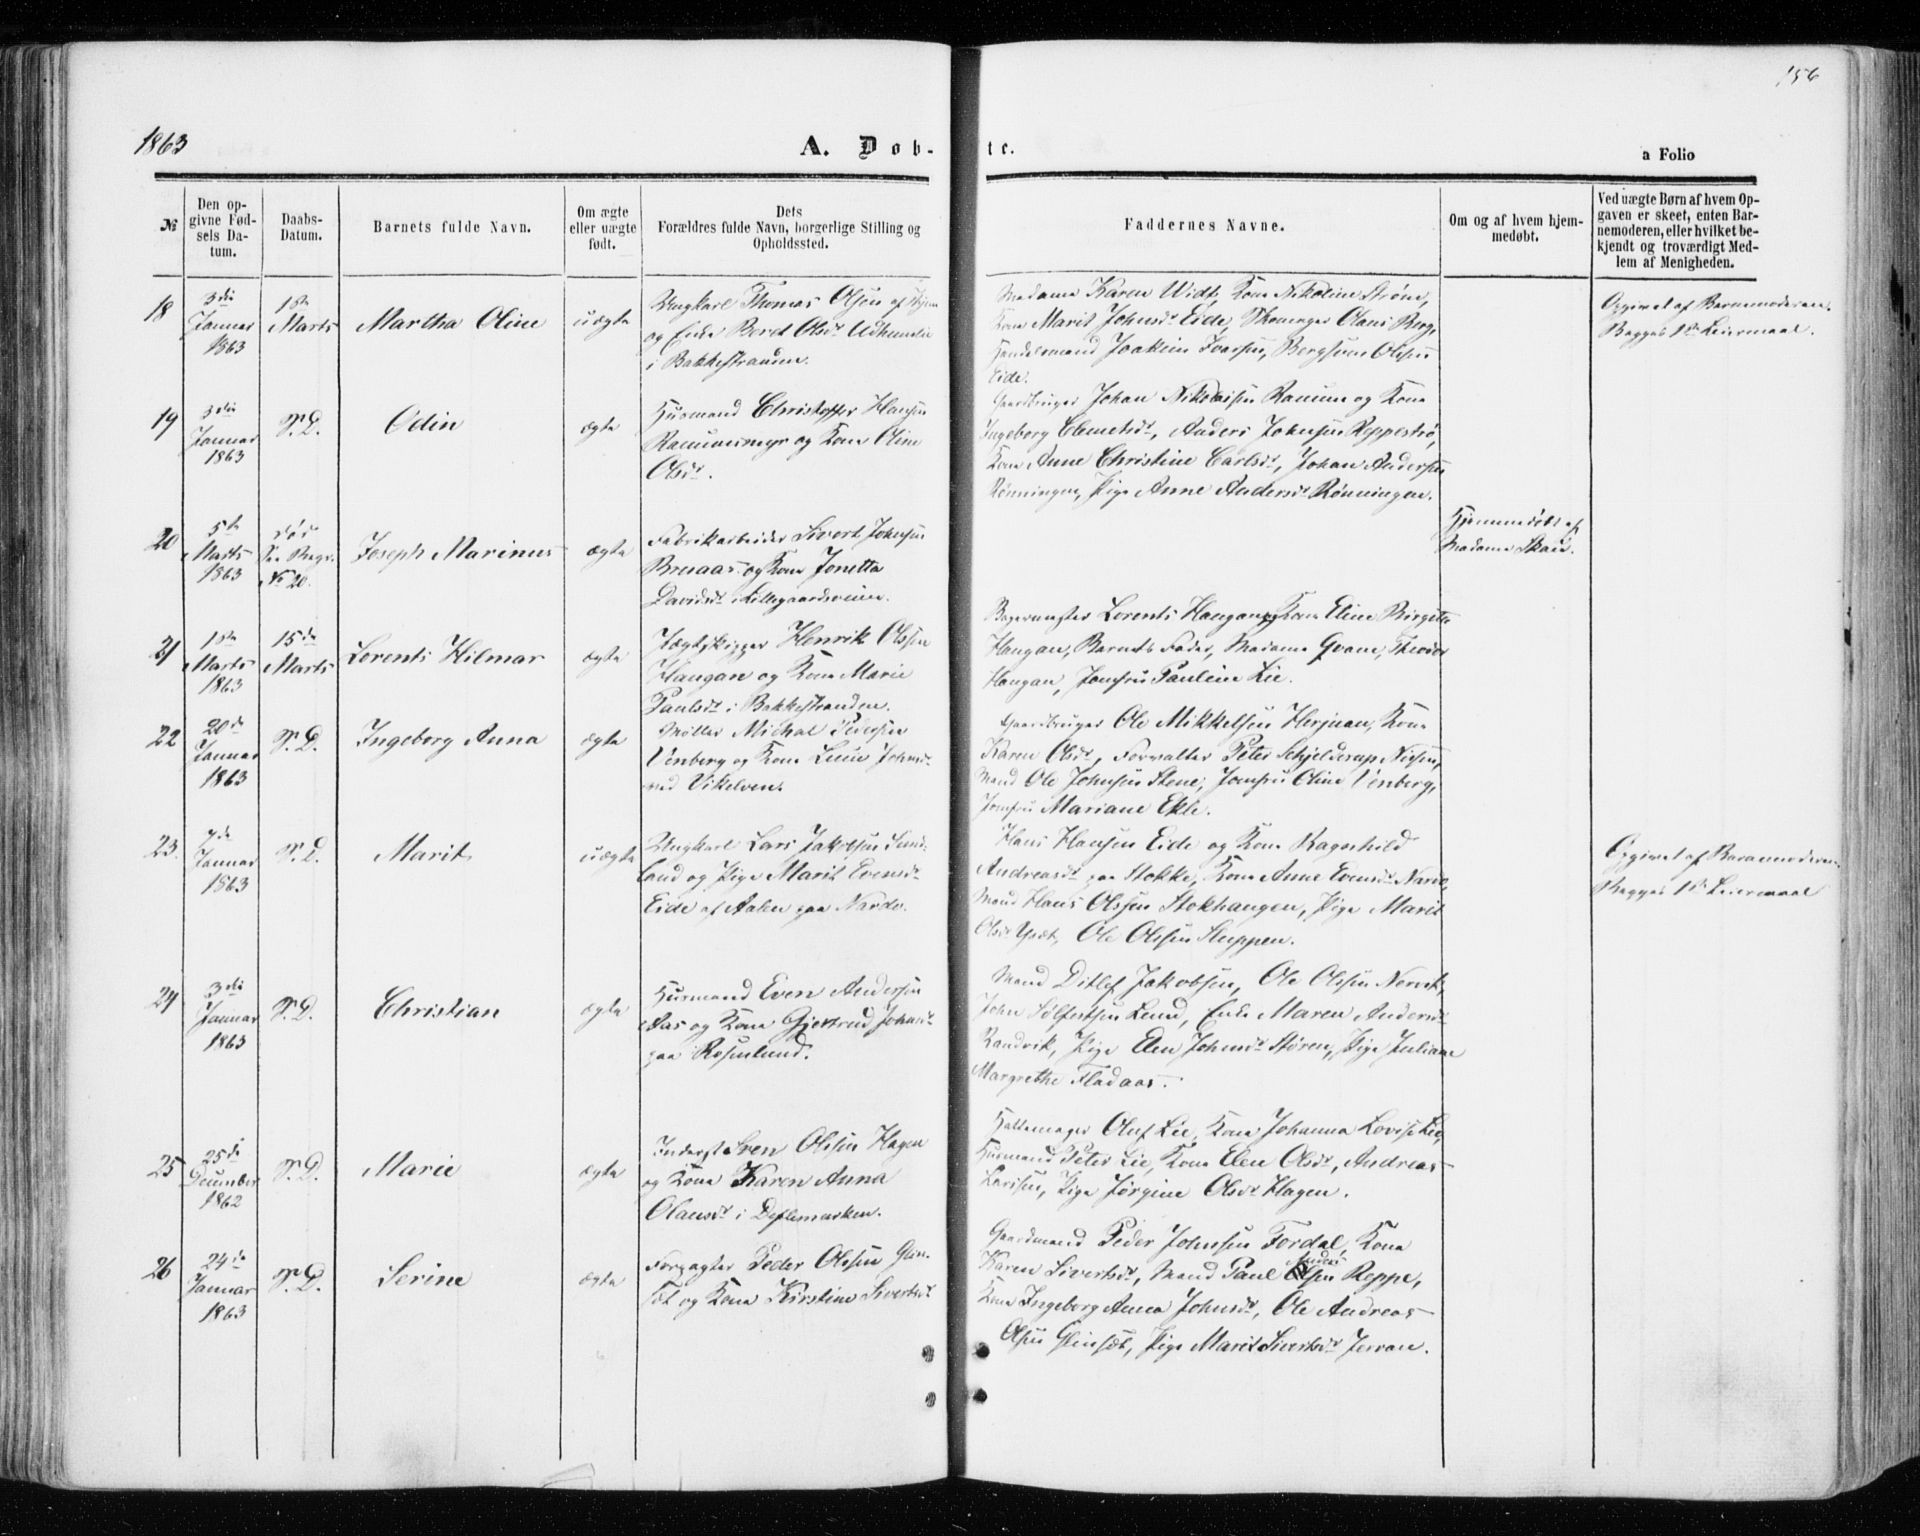 156
1863
A. Døb-
te.
a Folio
№
Den op-
givne Fød-
sels Da-
tum.
Daabs-
Datum.
Barnets fulde Navn.
Om ægte
eller uægte
født.
Dets
Forældres fulde Navn, borgerlige Stilling og
Opholdssted.
Faddernes Navne.
Om og af hvem hjem-
medøbt.
Ved uægte Børn af hvem Op-
gaven er skeet, enten Bar-
nemoderen, eller hvilket be-
kjendt og troværdigt Med-
lem af Menigheden.
18
3die
Januar
1863
1ste
Marts
Martha Oline
uægte
Ungkarl Thomas Olsen af
og Enke Beret Olsdt
i Bakkestranden.
Madame Karen Widt, Kone Nikoline Strøm,
Kone Marit Johnsdt Eide, Skomager Olaus Berg,
Handelsmand Joakim Iversen, Bergsven Olsen
Eide.
Opgivet af Barnemoderen.
Begges 1ste Leiermaal.
19
3die
Januar
1863
S.D.
Odin
ægte
Husmand Christoffer Hansen
Ranumsmyr og Kone Oline
Olsdt.
Gaardbruger Johan Nikolaisen Ranum og Kone
Ingeborg Clemetsdt, Anders Johnsen Reppestrø,
Kone Anne Christine Carlsdt, Johan Andersen
Rønningen, Pige Anne Andersdt Rønningen.
20
5te
Marts
1863
død
See Regr.
No 20.
Joseph Marinus
ægte
Fabrikarbeider Sivert Johnsen
Bruaas og Kone Jonetta
Davidsdt i Lillegaardsveien.
Hjemmedøbt af
Madame Skau.
21
1ste
Marts
1863
15de
Marts
Lorents Hilmar
ægte
Jægtskipper Henrik Olsen
Haugan og Kone Marie
Paulsdt i Bakkestranden.
Bagermester Lorents Haugan og Kone Eline Birgitte
Haugan, Barnets Fader, Madame Qvam, Theodor
Haugan, Jomfru Pauline Lie.
22
20de
Januar
1863
S.D.
Ingeborg Anna
ægte
Møller Michal Pedersen
Venberg og Kone Line Johnsdt
ved Vikelven.
Gaardbruger Ole Mikkelsen Herjuan, Kone
Karen Olsdt, Forvalter Peter Schjelderup Nissen,
Mand Ole Johnsen Stene, Jomfru Oline Venberg,
Jomfru Mariane Ekle.
23.
7de
Januar
1863
S.D.
Marit
uægte
Ungkarl Lars Jakobsen Sund-
land og Pige Marit Evensdt
Eide af Aalen paa Nardo.
Hans Hansen Eide og Kone Ragnhild
Andreasdt paa Stokke, Kone Anne Evensdt Nardo,
Mand Hans Olsen Stokhaugen, Pige Marit
Olsdt, Ole Olsen Sluppen.
Opgivet af Barnemoderen.
Begges 1ste Leiermaal
24
3die
Januar
1863
S.D.
Christian
ægte
Husmand Even Andersen
Aas og Kone Gjertrud Johnsdt
paa Rosenlund.
Mand Ditlef Jakobsen, Ole Olsen
John Sølfestsen Lund, Enke Maren Andersdt
Randvik, Pige Elen Johnsdt Støren, Pige Juliane
Margrethe Fladaas.
25
25de
December
1862
S.D.
Marie
ægte
Inderst Sven Olsen Hagen
og Kone Karen Anna
Olausdt i Deflemarken.
Hattemager Oluf Lie, Kone Johanna Lovise Lie,
Husmand Peter Lie, Kone Elen Olsdt, Andreas
Larsen, Pige Jørgine Olsdt Hagen.
26
24de
Januar
1863
S.D.
Serine
ægte
Forpagter Peder Olsen Glen-
sæt og Kone Kirstine Sivertsdt
Gaardmand Peder Johnsen Fordal, Kone
Karen Sivertsdt, Mand Paul Andersen Reppe,
Kone Ingeborg Anna Johnsdt, Ole Andreas
Olsen Glensæt, Pige Marit Sivertsdt Jervan.